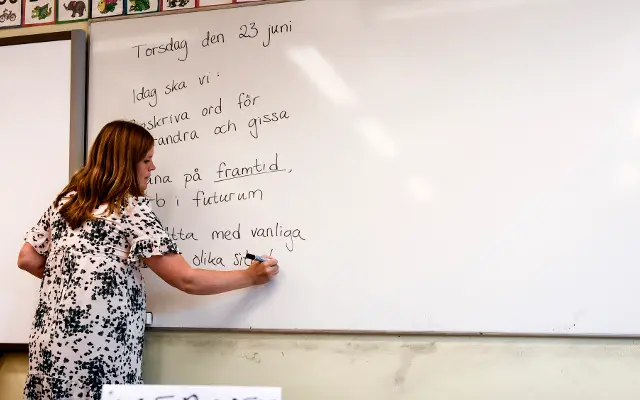 Torsdag den 23 juni
Idag ska vi:
eskriva ord för
andra och gissa
på framtid,
b i futurum
tta med vanliga
olika